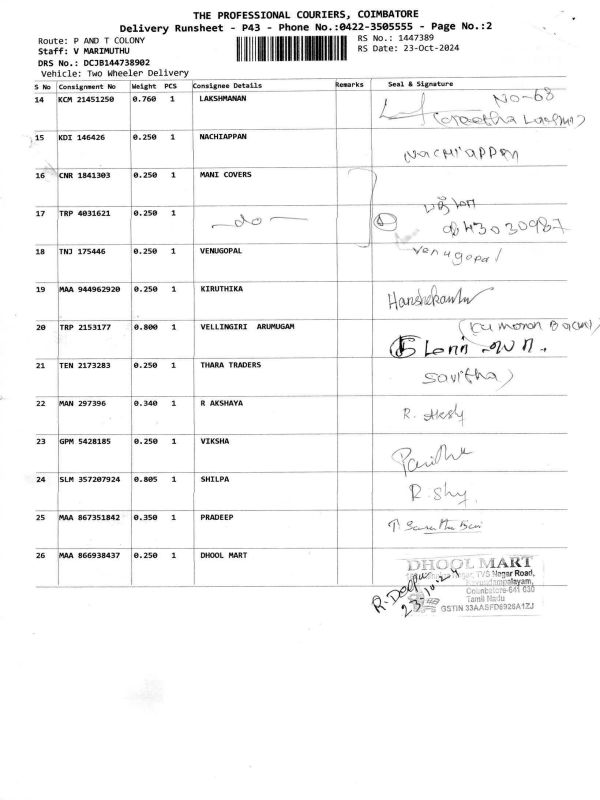 THE PROFESSIONAL COURIERS, COIMBATORE
Delivery Runsheet - P43 - Phone No.:0422-3505555 - Page No.:2
Route: P AND T COLONY
Staff: V MARIMUTHU
DRS No.: DCJB144738902
Vehicle: Two Wheeler Delivery
RS No.: 1447389
RS Date: 23-Oct-2024
S No Consignment No Weight PCS Consignee Details Remarks Seal & Signature
14 KCM 21451250 0.760 1 LAKSHMANAN NO-68
15 KDI 146426 0.250 1 NACHIAPPAN NACHIAPPAN
16 CNR 1841303 0.250 1 MANI COVERS
17 TRP 4031621 0.250 1 -do-
18 TNJ 175446 0.250 1 VENUGOPAL Venugopal
19 MAA 944962920 0.250 1 KIRUTHIKA
20 TRP 2153177 0.800 1 VELLINGIRI ARUMUGAM
21 TEN 2173283 0.250 1 THARA TRADERS Savitha
22 MAN 297396 0.340 1 R AKSHAYA
23 GPM 5428185 0.250 1 VIKSHA
24 SLM 357207924 0.805 1 SHILPA R. Shy
25 MAA 867351842 0.350 1 PRADEEP
26 MAA 866938437 0.250 1 DHOOL MART DHOOL MART
TVS Nagar Road,
Coimbatore-641 030
Tamil Nadu
R. Deepa
23-10-24